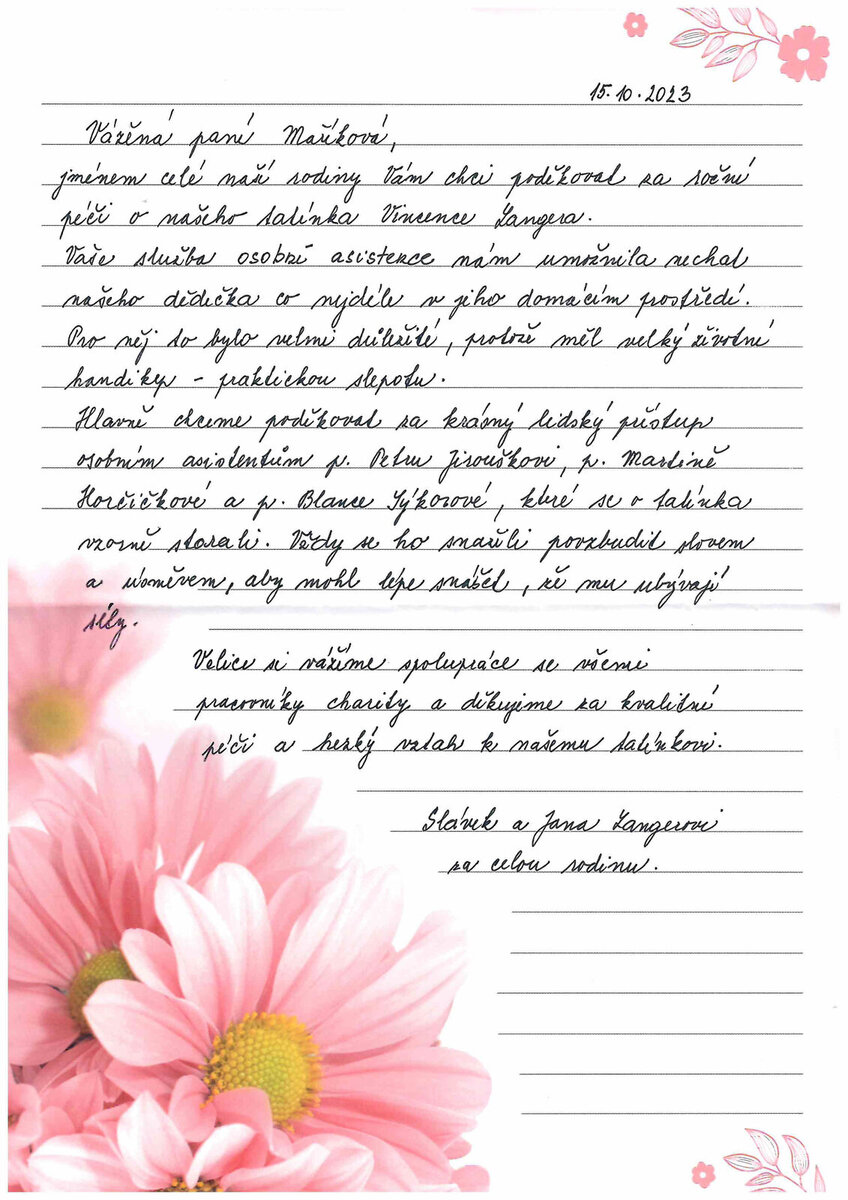 15.10.2023
Vážená paní Maříková,
jménem celé naší rodiny Vám chci poděkovat za roční
péči o našeho tatínka Vincence Langera.
Vaše služba osobní asistence nám umožnila nechat
našeho dědečka co nejdéle v jeho domácím prostředí.
Pro něj to bylo velmi důležité, protože měl velký životní
handikep – praktickou slepotu.
Hlavně chceme poděkovat za krásný lidský přístup
osobním asistentům p. Petru Jirouškovi, p. Martině
Horčičkové a p. Blance Sýkorové, které se o tatínka
vzorně starali. Vždy se ho snažili povzbudit slovem
a úsměvem, aby mohl lépe snášet, že mu ubývají
síly.
Velice si vážíme spolupráce se všemi
pracovníky charity a děkujeme za kvalitní
péči a hezký vztah k našemu tatínkovi.
Slávek a Jana Langerovi
za celou rodinu.